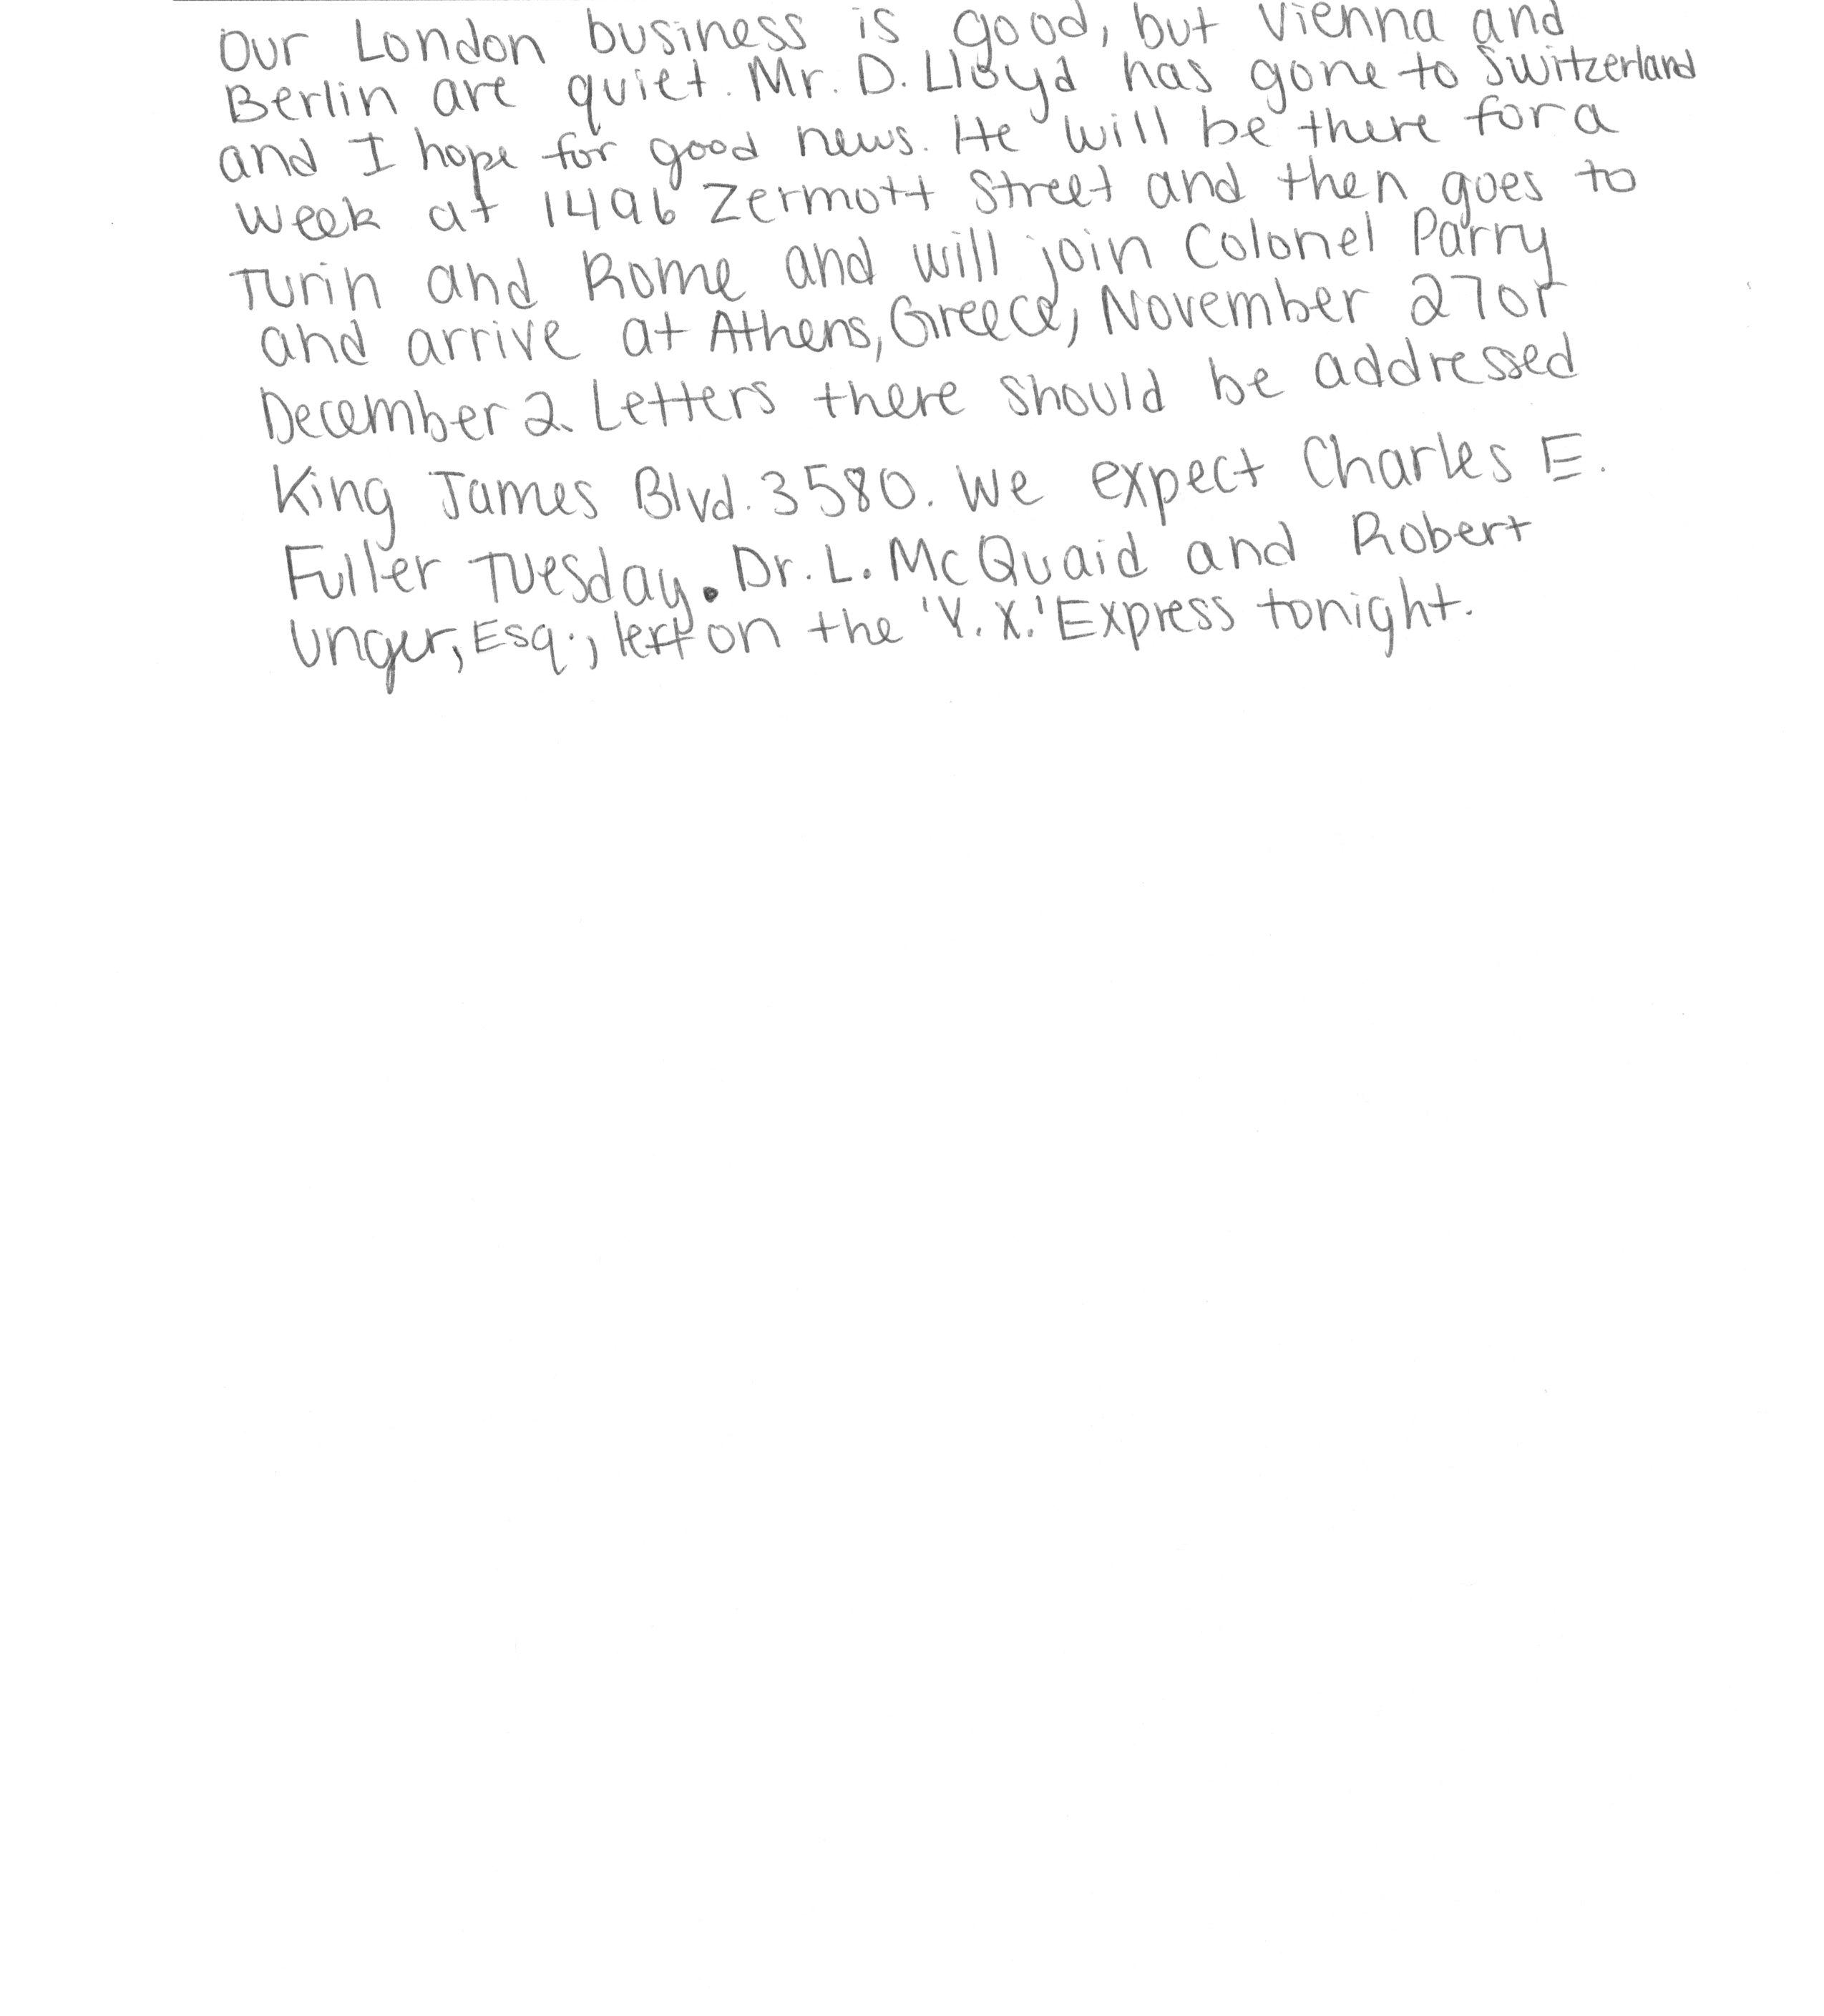 Our London business is good, but Vienna and
Berlin are quiet. Mr. D. Lloyd has gone to Switzerland
and I hope for good news. He will be there for a
week at 1496 Zermott Street and then goes to
Turin and Rome and will join Colonel Parry
and arrive at Athens, Greece, November 27 or
December 2. Letters there should be addressed
King James Blvd. 3580. We expect Charles E.
Fuller Tuesday. Dr. L. McQuaid and Robert
Unger, Esq., left on the 'Y.X.' Express tonight.